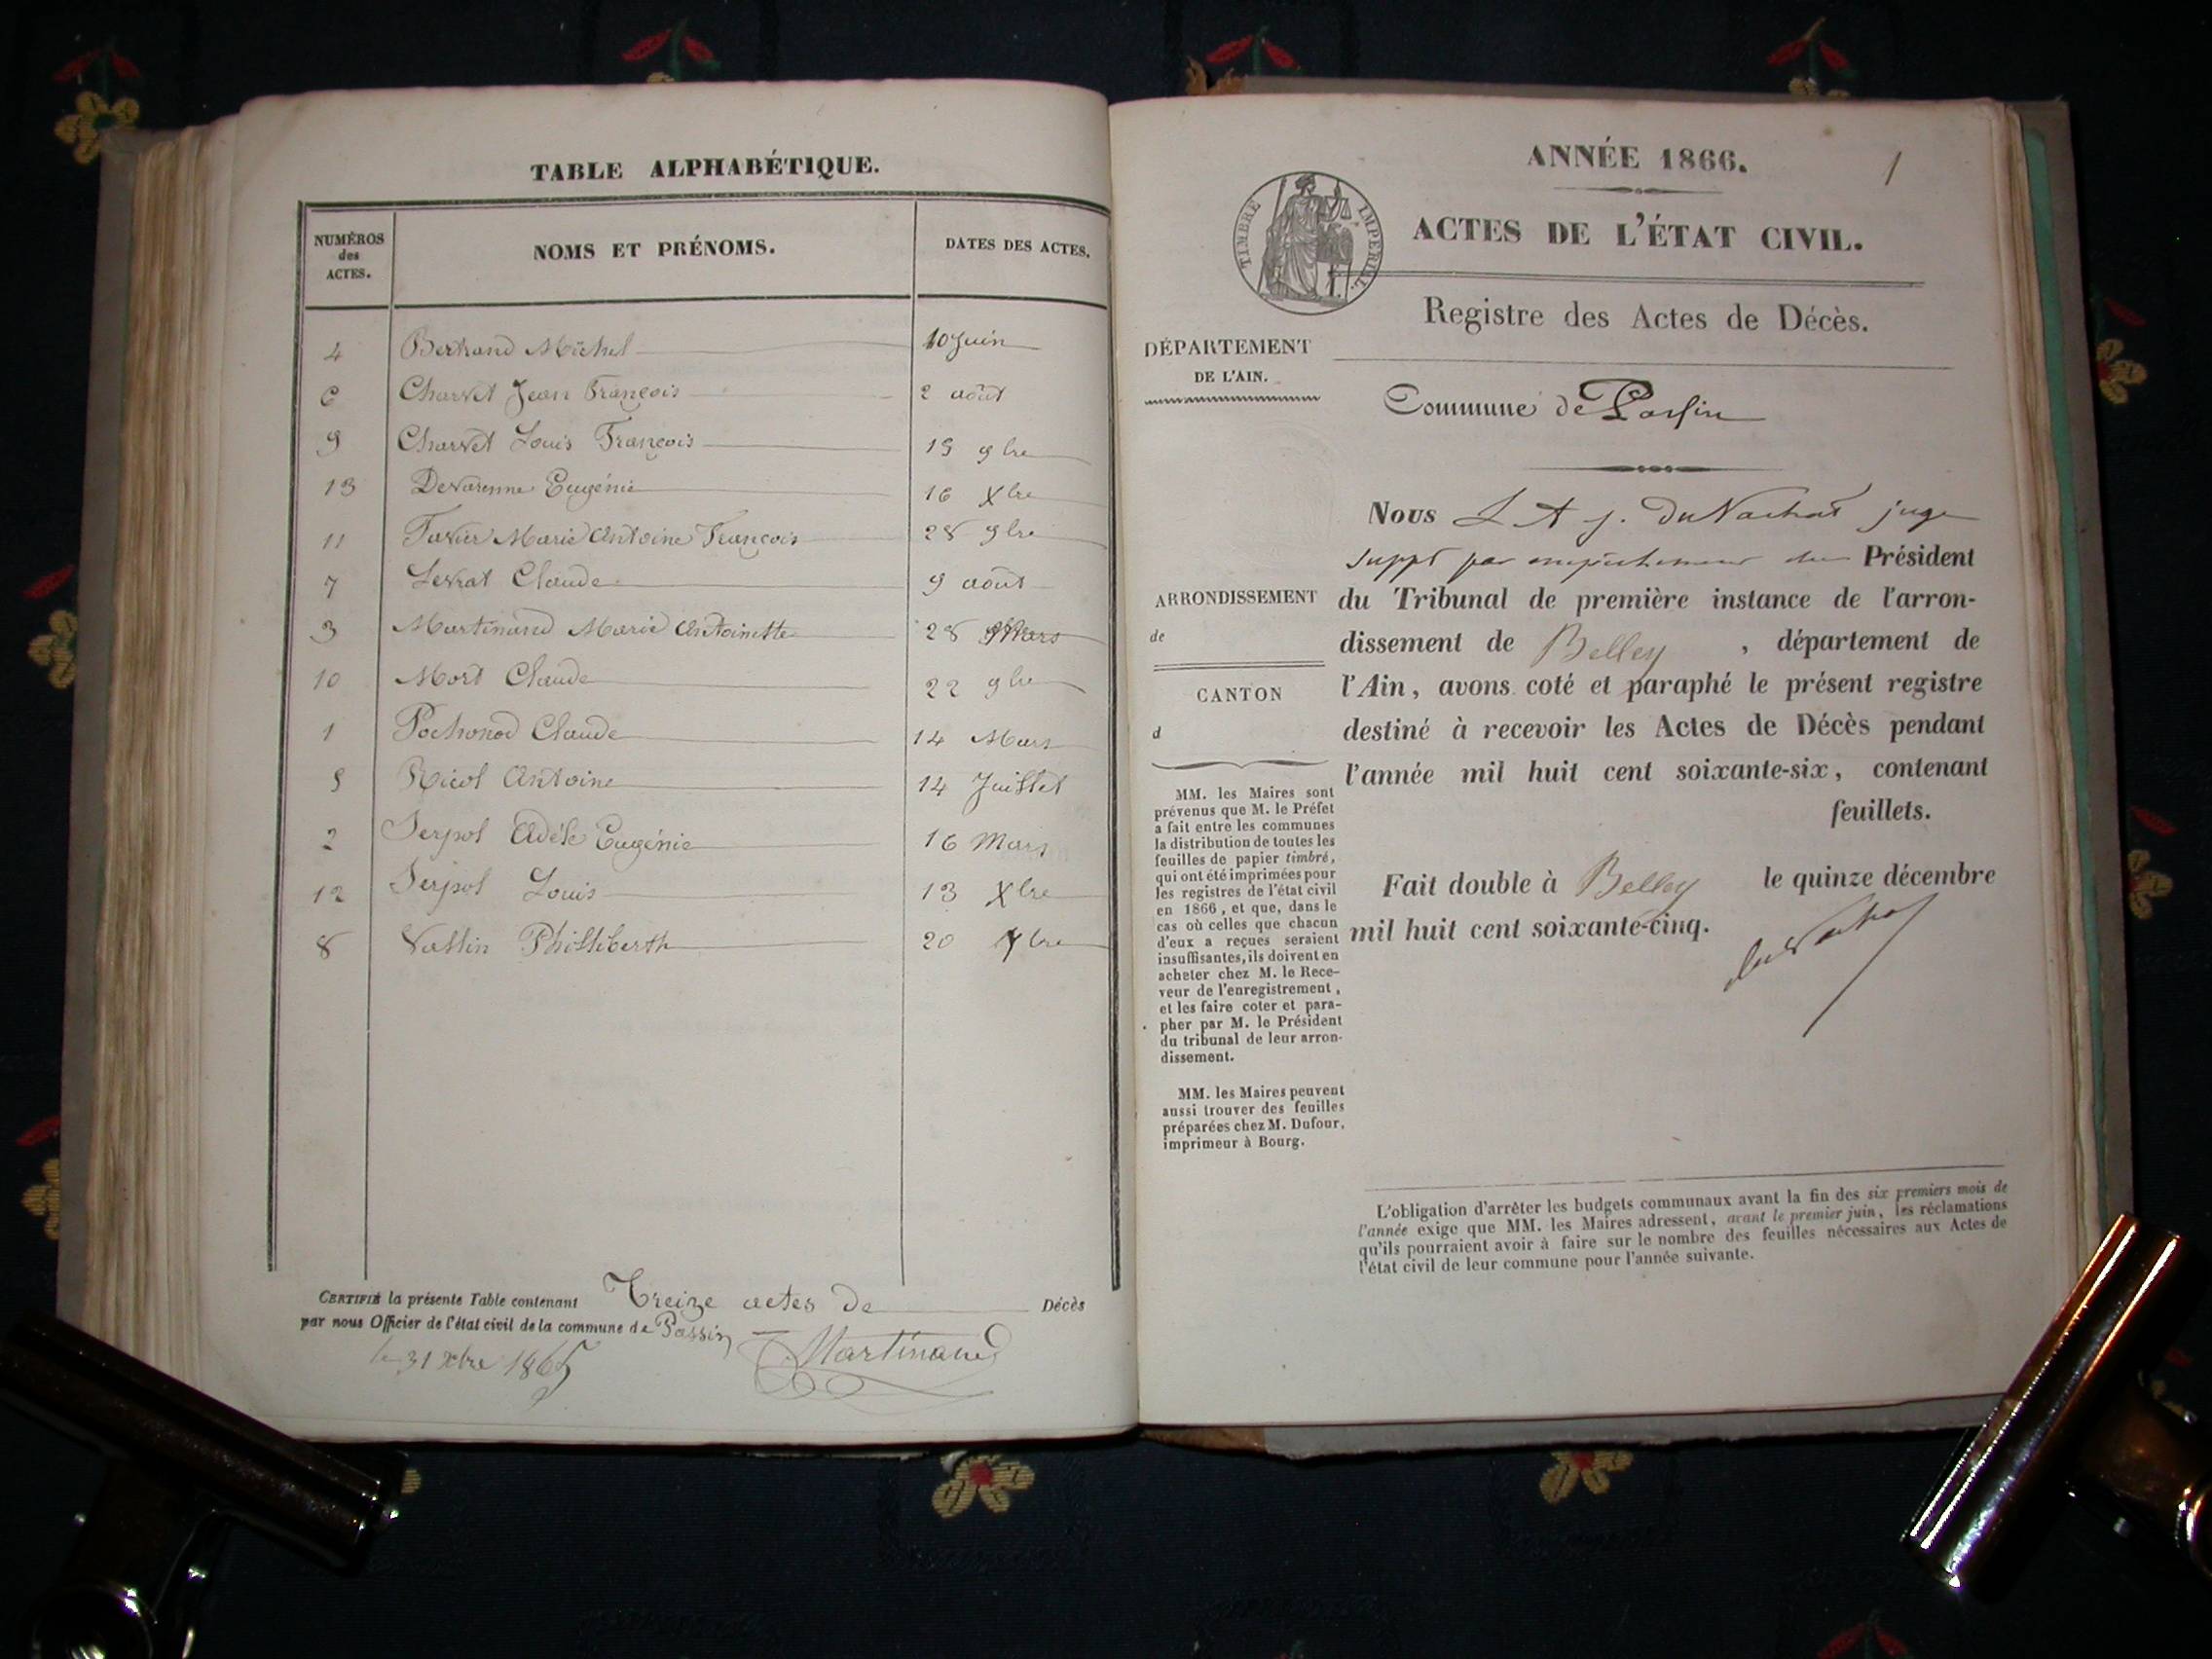 TABLE ALPHABÉTIQUE.
NUMÉROS
des
ACTES.
NOMS ET PRÉNOMS.
DATES DES ACTES.
4 Bertrand Michel 10 Juin
6 Charvet Jean François 2 août
9 Charvet Louis François 19 9bre
13 Devarenne Eugénie 16 Xbre
11 Favier Marie Antoine François 28 9bre
7 Levrat Claude 9 août
3 Martinand Marie Antoinette 28 Mars
10 Mort Claude 22 9bre
1 Pochonod Claude 14 Mars
5 Ricol Antoine 14 Juillet
2 Serpol Adèle Eugénie 16 Mars
12 Serpol Louis 13 Xbre
8 Vallin Philliberth 20 bre
CERTIFIÉ la présente Table contenant Treize actes de Décès
par nous Officier de l'état civil de la commune de Passin
le 31 Xbre 1865
Martinand
ANNÉE 1866.
1
TIMBRE IMPERIAL.
ACTES DE L'ÉTAT CIVIL.
Registre des Actes de Décès.
DÉPARTEMENT
DE L'AIN.
Commune de Passin
Nous L A J. DuVachat juge
suppt par empêchement du Président
du Tribunal de première instance de l'arron-
dissement de Belley, département de
l'Ain, avons coté et paraphé le présent registre
destiné à recevoir les Actes de Décès pendant
l'année mil huit cent soixante-six, contenant
feuillets.
Fait double à Belley le quinze décembre
mil huit cent soixante-cinq.
duVachat
ARRONDISSEMENT
de
CANTON
d
MM. les Maires sont
prévenus que M. le Préfet
a fait entre les communes
la distribution de toutes les
feuilles de papier timbré,
qui ont été imprimées pour
les registres de l'état civil
en 1866, et que, dans le
cas où celles que chacun
d'eux a reçues seraient
insuffisantes, ils doivent en
acheter chez M. le Rece-
veur de l'enregistrement,
et les faire coter et para-
pher par M. le Président
du tribunal de leur arron-
dissement.
MM. les Maires peuvent
aussi trouver des feuilles
préparées chez M. Dufour,
imprimeur à Bourg.
L'obligation d'arrêter les budgets communaux avant la fin des six premiers mois de
l'année exige que MM. les Maires adressent, avant le premier juin, les réclamations
qu'ils pourraient avoir à faire sur le nombre des feuilles nécessaires aux Actes de
l'état civil de leur commune pour l'année suivante.